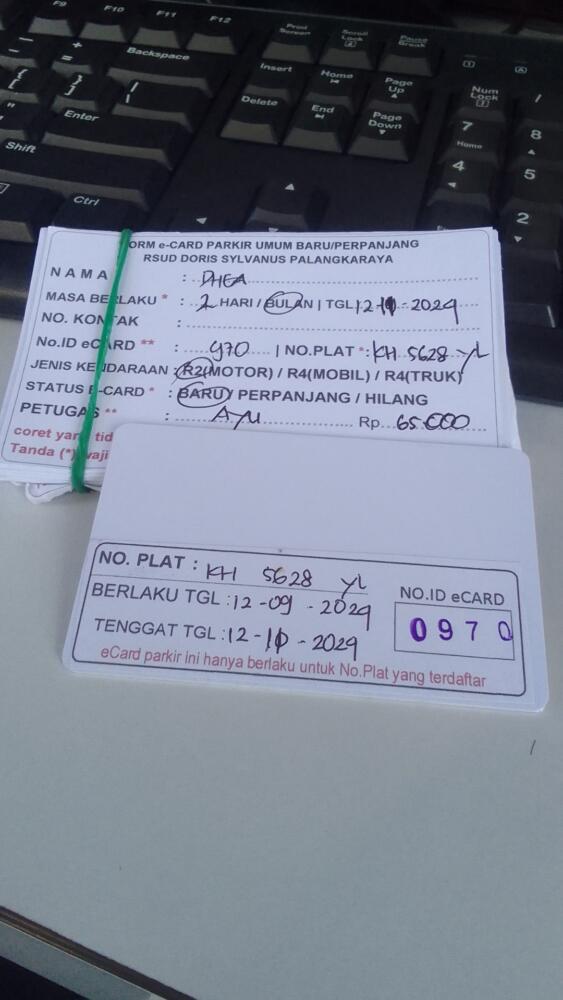 F9 F10 F11 F12
Print Screen Scroll Lock Pause Break
Backspace
Insert Home Page Up Num Lock
Delete End Page Down
Enter
Shift
Ctrl
7 Home 8
4 5
2
ORM e-CARD PARKIR UMUM BARU/PERPANJANG
RSUD DORIS SYLVANUS PALANGKARAYA
NAMA : DHEA
MASA BERLAKU * : 2 HARI / BULAN | TGL 12 - 2024
NO. KONTAK :
No.ID eCARD ** : 970 | NO.PLAT *: KH 5628 YL
JENIS KENDARAAN : R2(MOTOR) / R4(MOBIL) / R4(TRUK)
STATUS E-CARD * : BARU / PERPANJANG / HILANG
PETUGAS ** : AYU Rp. 65.000
coret yang tid
Tanda (*) waji
NO. PLAT : KH 5628 YL
BERLAKU TGL : 12-09-2024
TENGGAT TGL : 12-10-2024
NO.ID eCARD
0970
eCard parkir ini hanya berlaku untuk No.Plat yang terdaftar